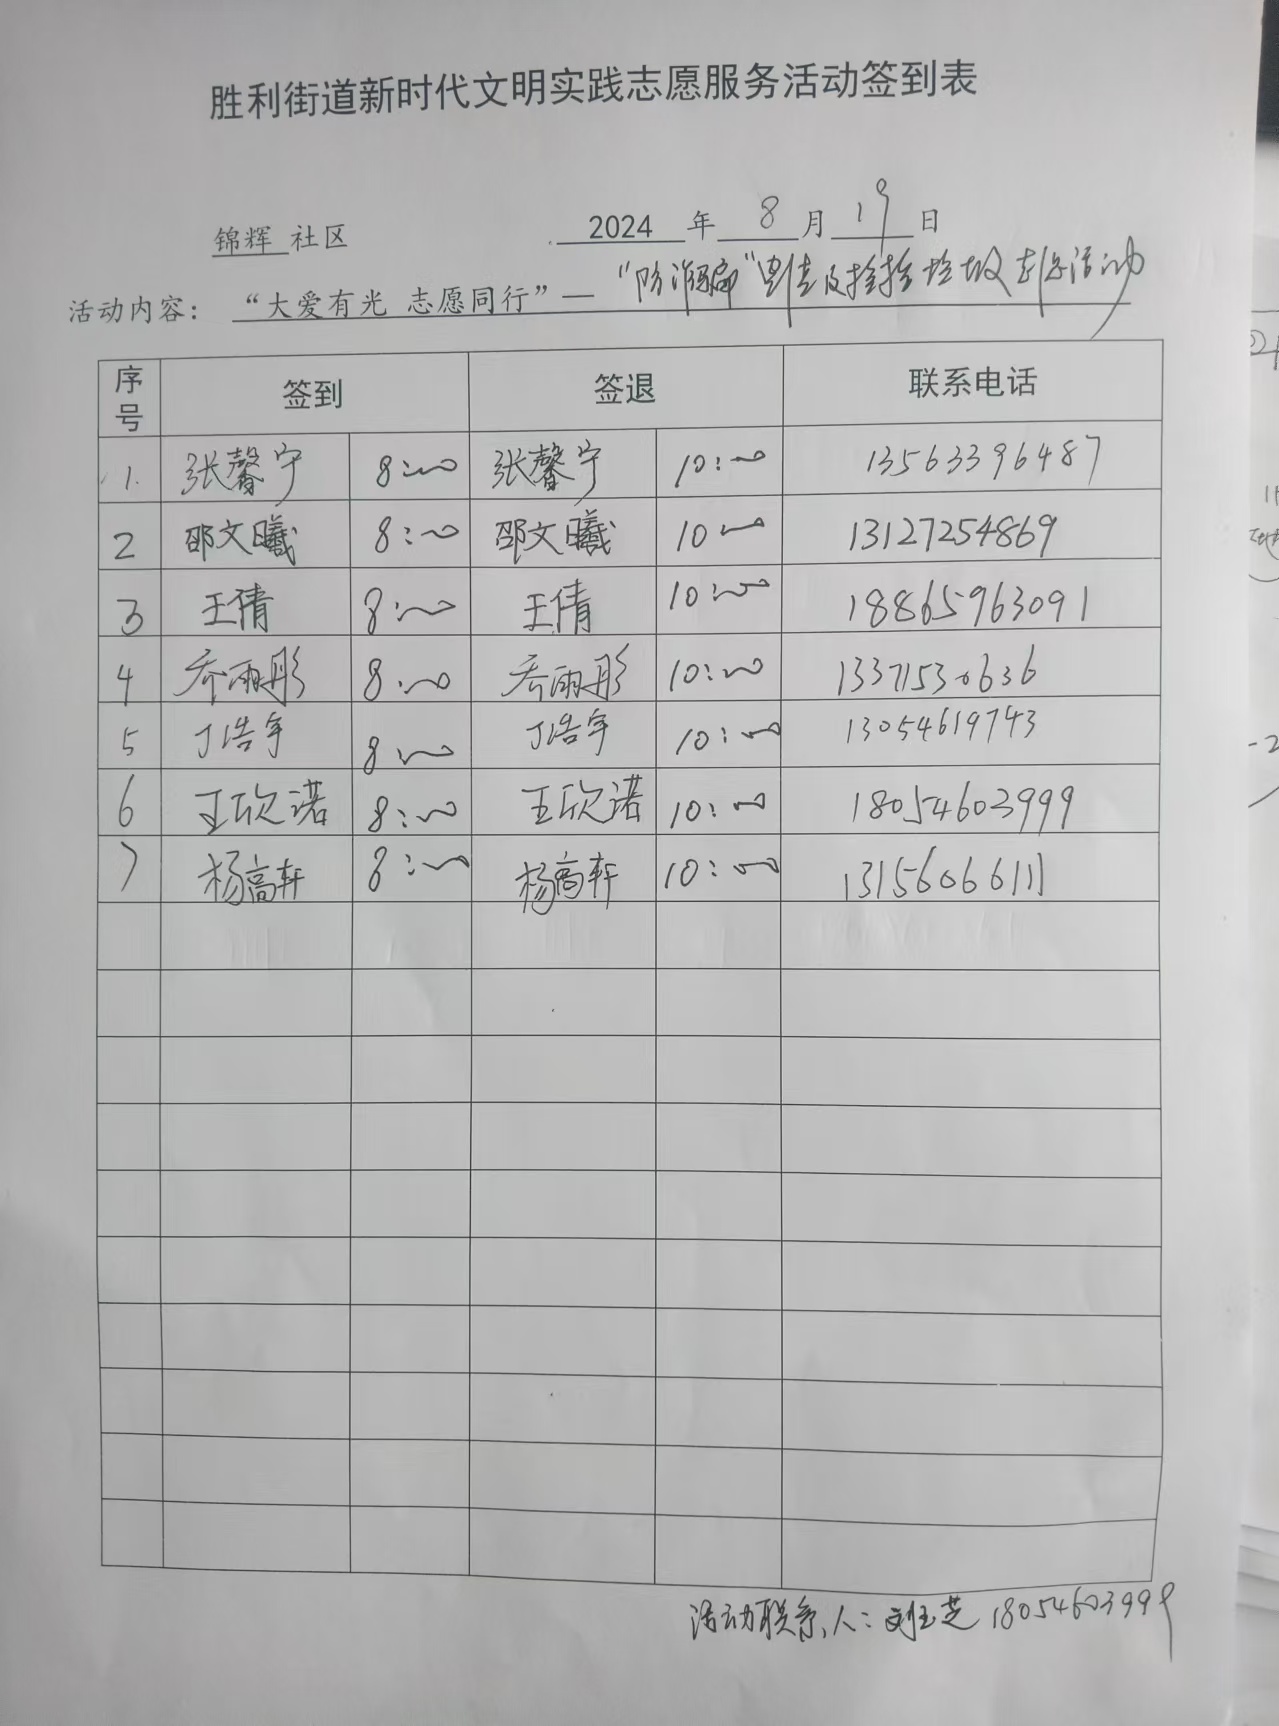 胜利街道新时代文明实践志愿服务活动签到表
锦辉 社区 2024 年 8 月 19 日
活动内容：“大爱有光 志愿同行”— “防诈骗”宣传及捡拾垃圾志愿活动
序号 签到 签退 联系电话
1. 张馨宁 8:00 张馨宁 10:00 13563396487
2 邵文曦 8:00 邵文曦 10:00 13127254869
3 王倩 8:00 王倩 10:00 18865963091
4 乔雨彤 8:00 乔雨彤 10:00 13371530636
5 丁浩宇 8:00 丁浩宇 10:00 13054619743
6 王欣诺 8:00 王欣诺 10:00 18054603999
7 杨高轩 8:00 杨高轩 10:00 13156066111
活动联系人：刘玉芝 18054603999